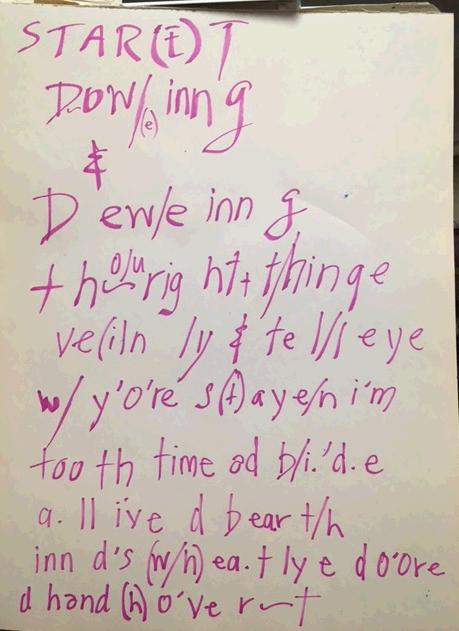 STAR(t)T
DOW/(e)inn g
&
D ew/e inn g
t h o/u rig ht, t/hinge
ve(iln ly & te l/s eye
w/ y'o're s(t)aye/n i'm
too th time od b/i.'d.e
a. ll ive d bear t/h
inn d's (w/h) ea.t ly e d o'ore
d hand (h) o've r~t